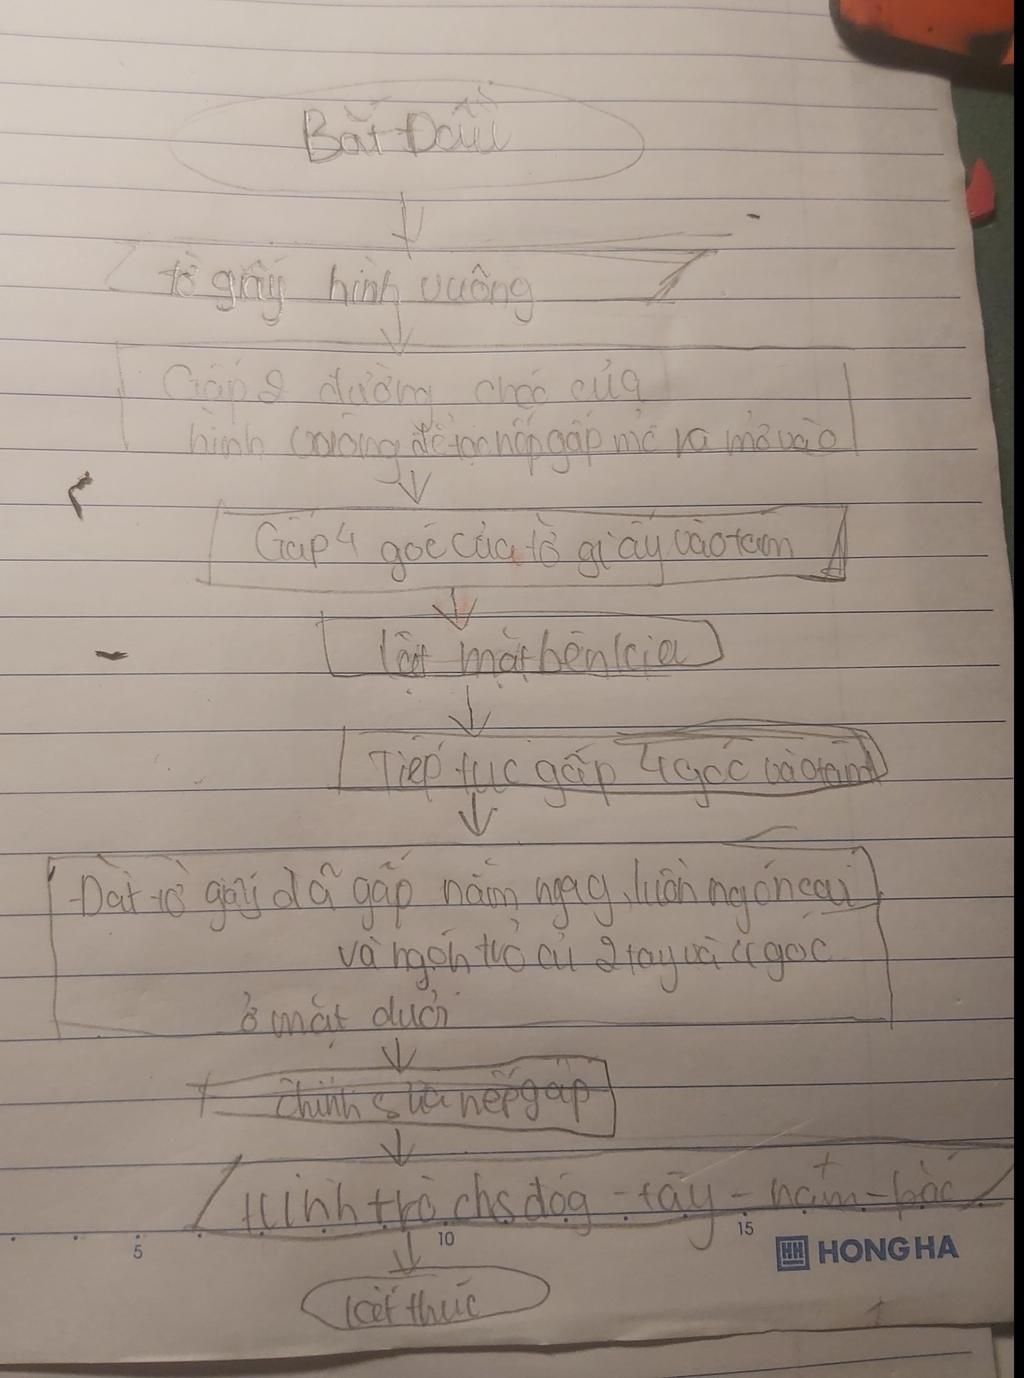 Bắt Đầu
tờ giấy hình vuông
Gấp 2 đường chéo của
hình vuông để tạo nếp gấp mở ra mở vào
Gấp 4 góc của tờ giấy vào tâm
lật mặt bên kia
Tiếp tục gấp 4 góc vào tâm
Đặt tờ giấy đã gấp nằm ngag, luồn ngón cái
và ngón trỏ củ 2 tay và 4 góc
ở mặt dưới
chỉnh sửa nếp gấp
Hình trò chs đôg - tây - nam - bắc
5 10 15
HONG HA
kết thúc